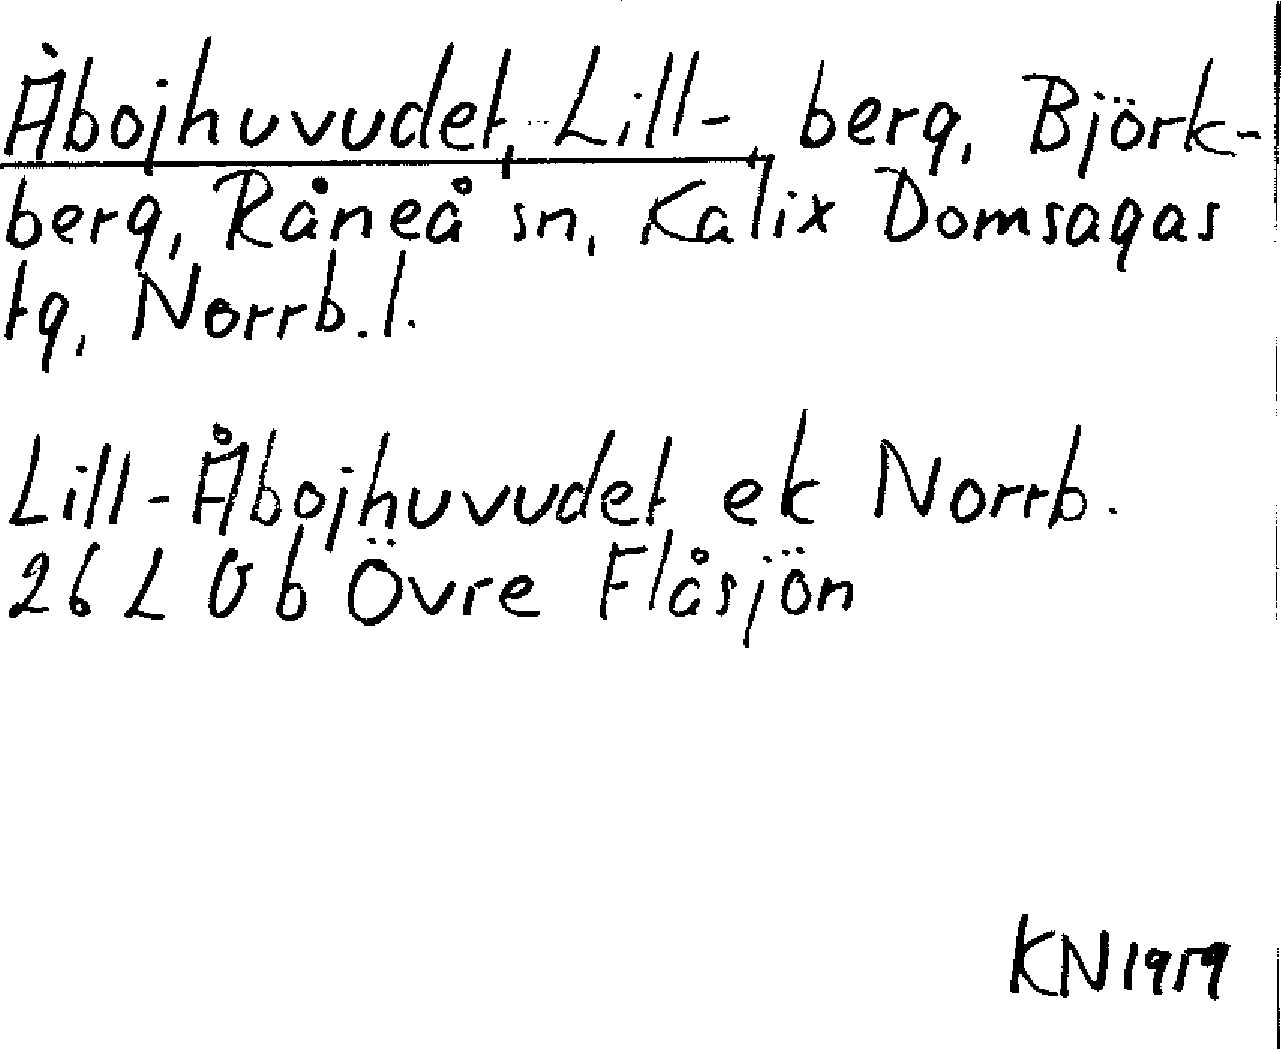 Åbojhuvudet, Lill-, berg, Björk-
berg, Råneå sn, Kalix Domsagas
tg, Norrb. l.
Lill-Åbojhuvudet ek Norrb.
26 L 0 b Övre Flåsjön
KN 1959